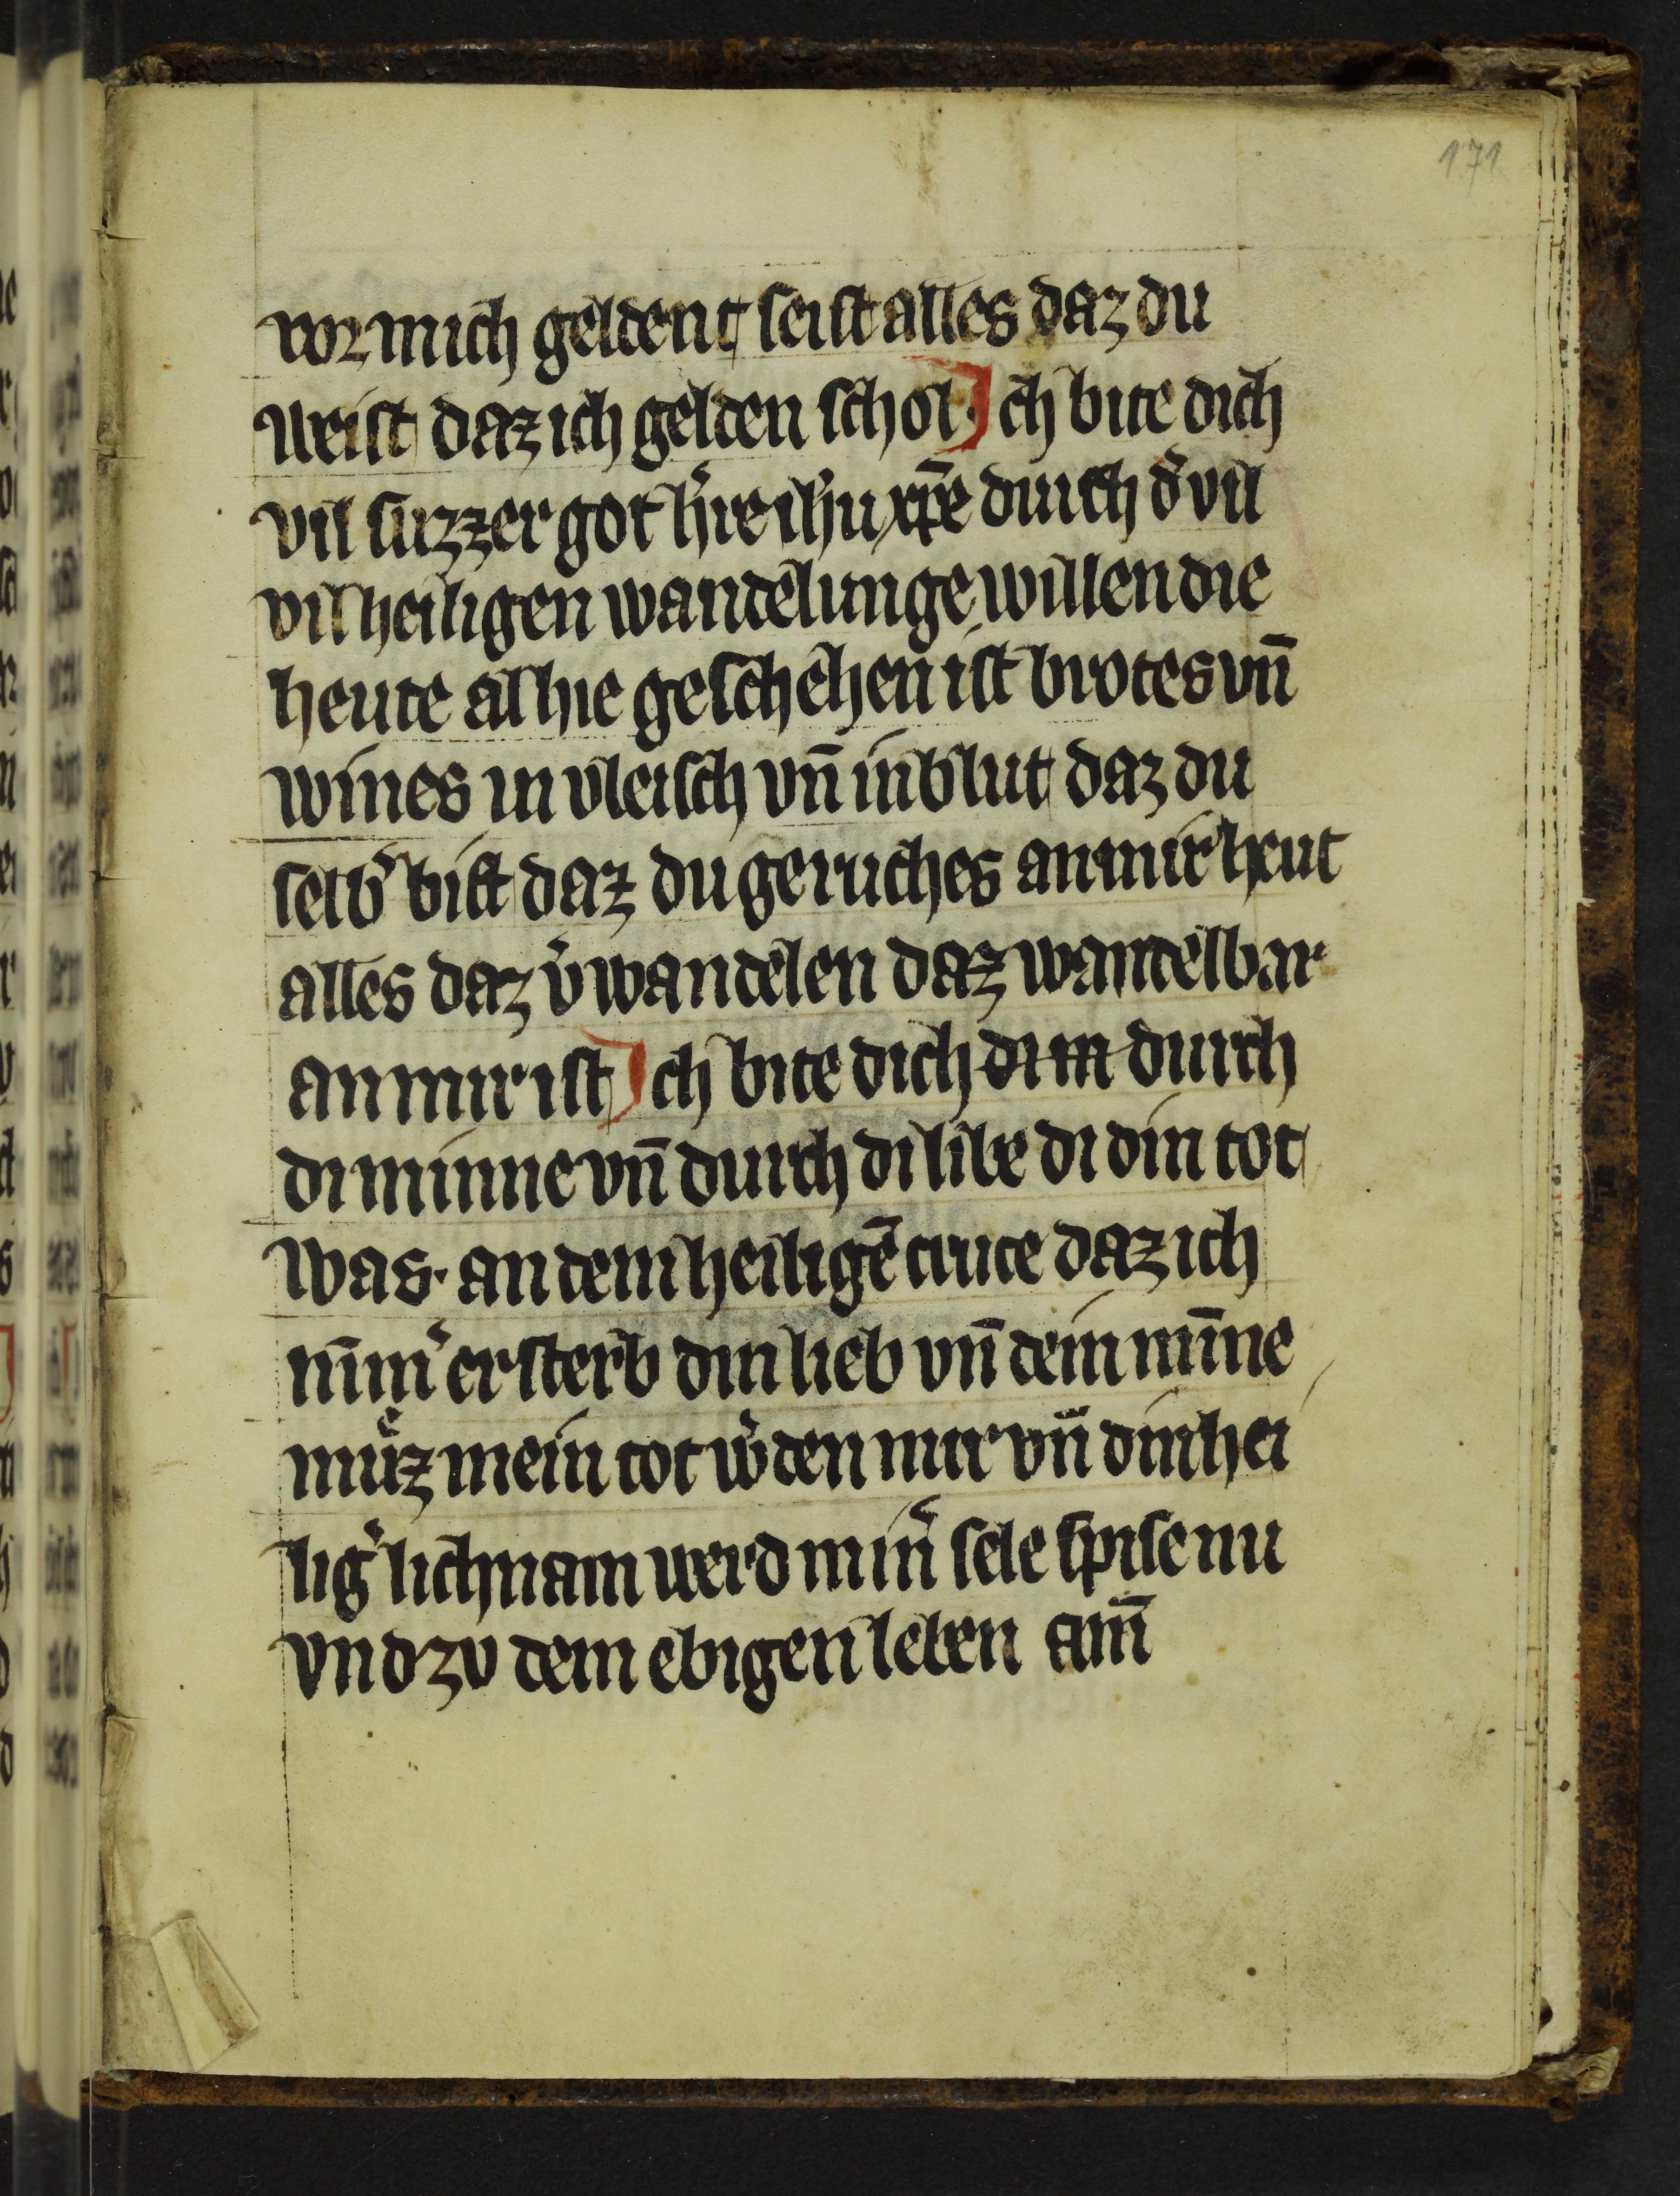 171
vor mich geldent seist alles daz du
weist daz ich gelden schol · Jch bite dich
vil suzzer got h̓re ih̓u xp̄e durch d̓ vil
vil heiligen wandelunge willen die
heute alhie geschehen ist brotes vn̄
wines in vleisch vn̄ in blut daz du
selb̓ bist daz du geruches an mir heut
alles daz v̓wandelen daz wandelbar
an mir ist Jch bite dich dim durch
di minne vn̄ durch di libe di din tot
was · an dem heiligē cruce daz ich
nīm̓ ersterb din lieb vn̄ dein mīne
muͤz mein tot w̓den mir vn̄ din hei
lig̓ lichnam werd min̓ sele spise nu
vnd zv dem ebigen leben am̄